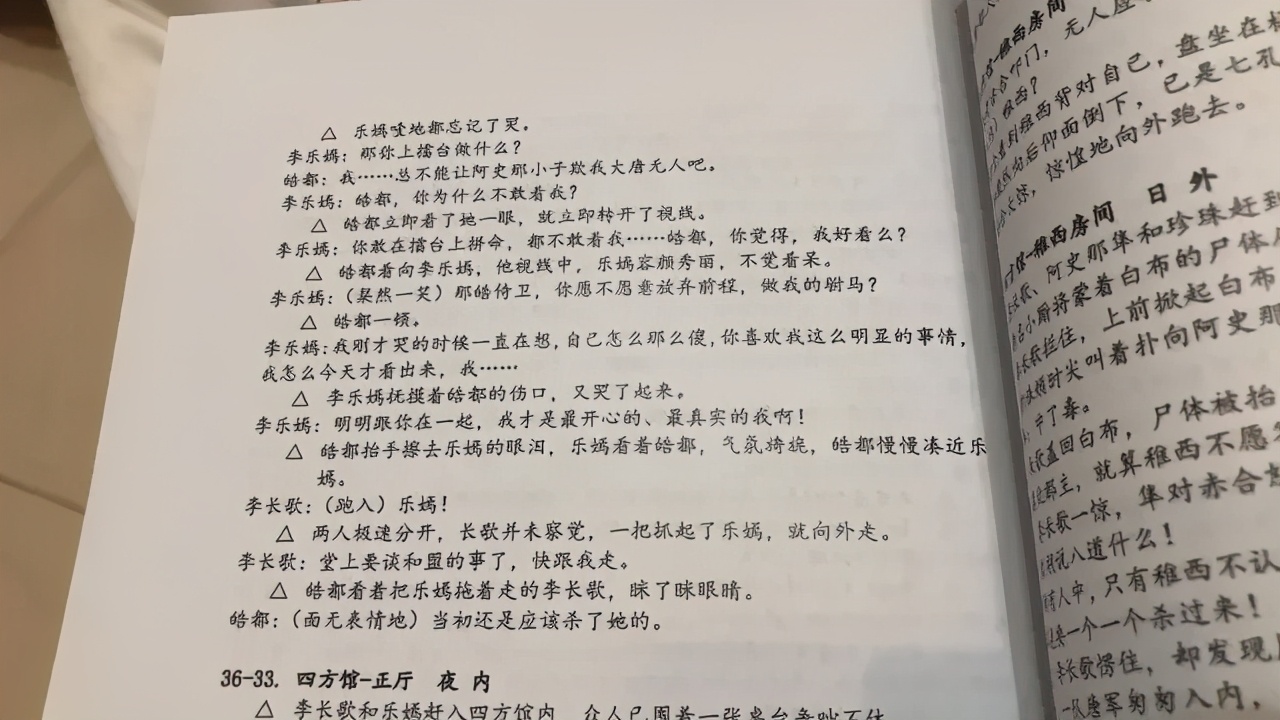 △ 乐嫣噎地都忘记了哭。
李乐嫣：那你上擂台做什么？
皓都：我……总不能让阿史那小子欺我大唐无人吧。
李乐嫣：皓都，你为什么不敢看我？
△ 皓都立即看了她一眼，就立即转开了视线。
李乐嫣：你敢在擂台上拼命，都不敢看我……皓都，你觉得，我好看么？
△ 皓都看向李乐嫣，他视线中，乐嫣容颜秀丽，不觉看呆。
李乐嫣：（粲然一笑）那皓侍卫，你愿不愿意放弃前程，做我的驸马？
△ 皓都一顿。
李乐嫣：我刚才哭的时候一直在想，自己怎么那么傻，你喜欢我这么明显的事情，
我怎么今天才看出来，我……
△ 李乐嫣抚摸着皓都的伤口，又哭了起来。
李乐嫣：明明跟你在一起，我才是最开心的、最真实的我啊！
△ 皓都抬手擦去乐嫣的眼泪，乐嫣看着皓都，气氛旖旎，皓都慢慢凑近乐
嫣。
李长歌：（跑入）乐嫣！
△ 两人极速分开，长歌并未察觉，一把抓起了乐嫣，就向外走。
李长歌：堂上要谈和盟的事了，快跟我走。
△ 皓都看着把乐嫣拖着走的李长歌，眯了眯眼睛。
皓都：（面无表情地）当初还是应该杀了她的。
36-33. 四方馆-正厅 夜 内
△ 李长歌和乐嫣赶入四方馆内，众人已围着一张桌台争吵不休
稚西房间
叩门，无人应
稚西？
到稚西背对自己，盘坐在
后仰面倒下，已是七孔
惊惶地向外跑去。
馆-稚西房间 日 外
阿史那隼和珍珠赶到
小厮将蒙着白布的尸体
长歌拦住，上前掀起白布
时尖叫着扑向阿史那
中了毒。
盖回白布，尸体被抬
郡主，就算稚西不愿
长歌一惊，隼对赤合
胡说八道什么！
有人中，只有稚西不认
一个一个杀过来！
李长歌愣住，却发现
一队唐军匆匆入内，